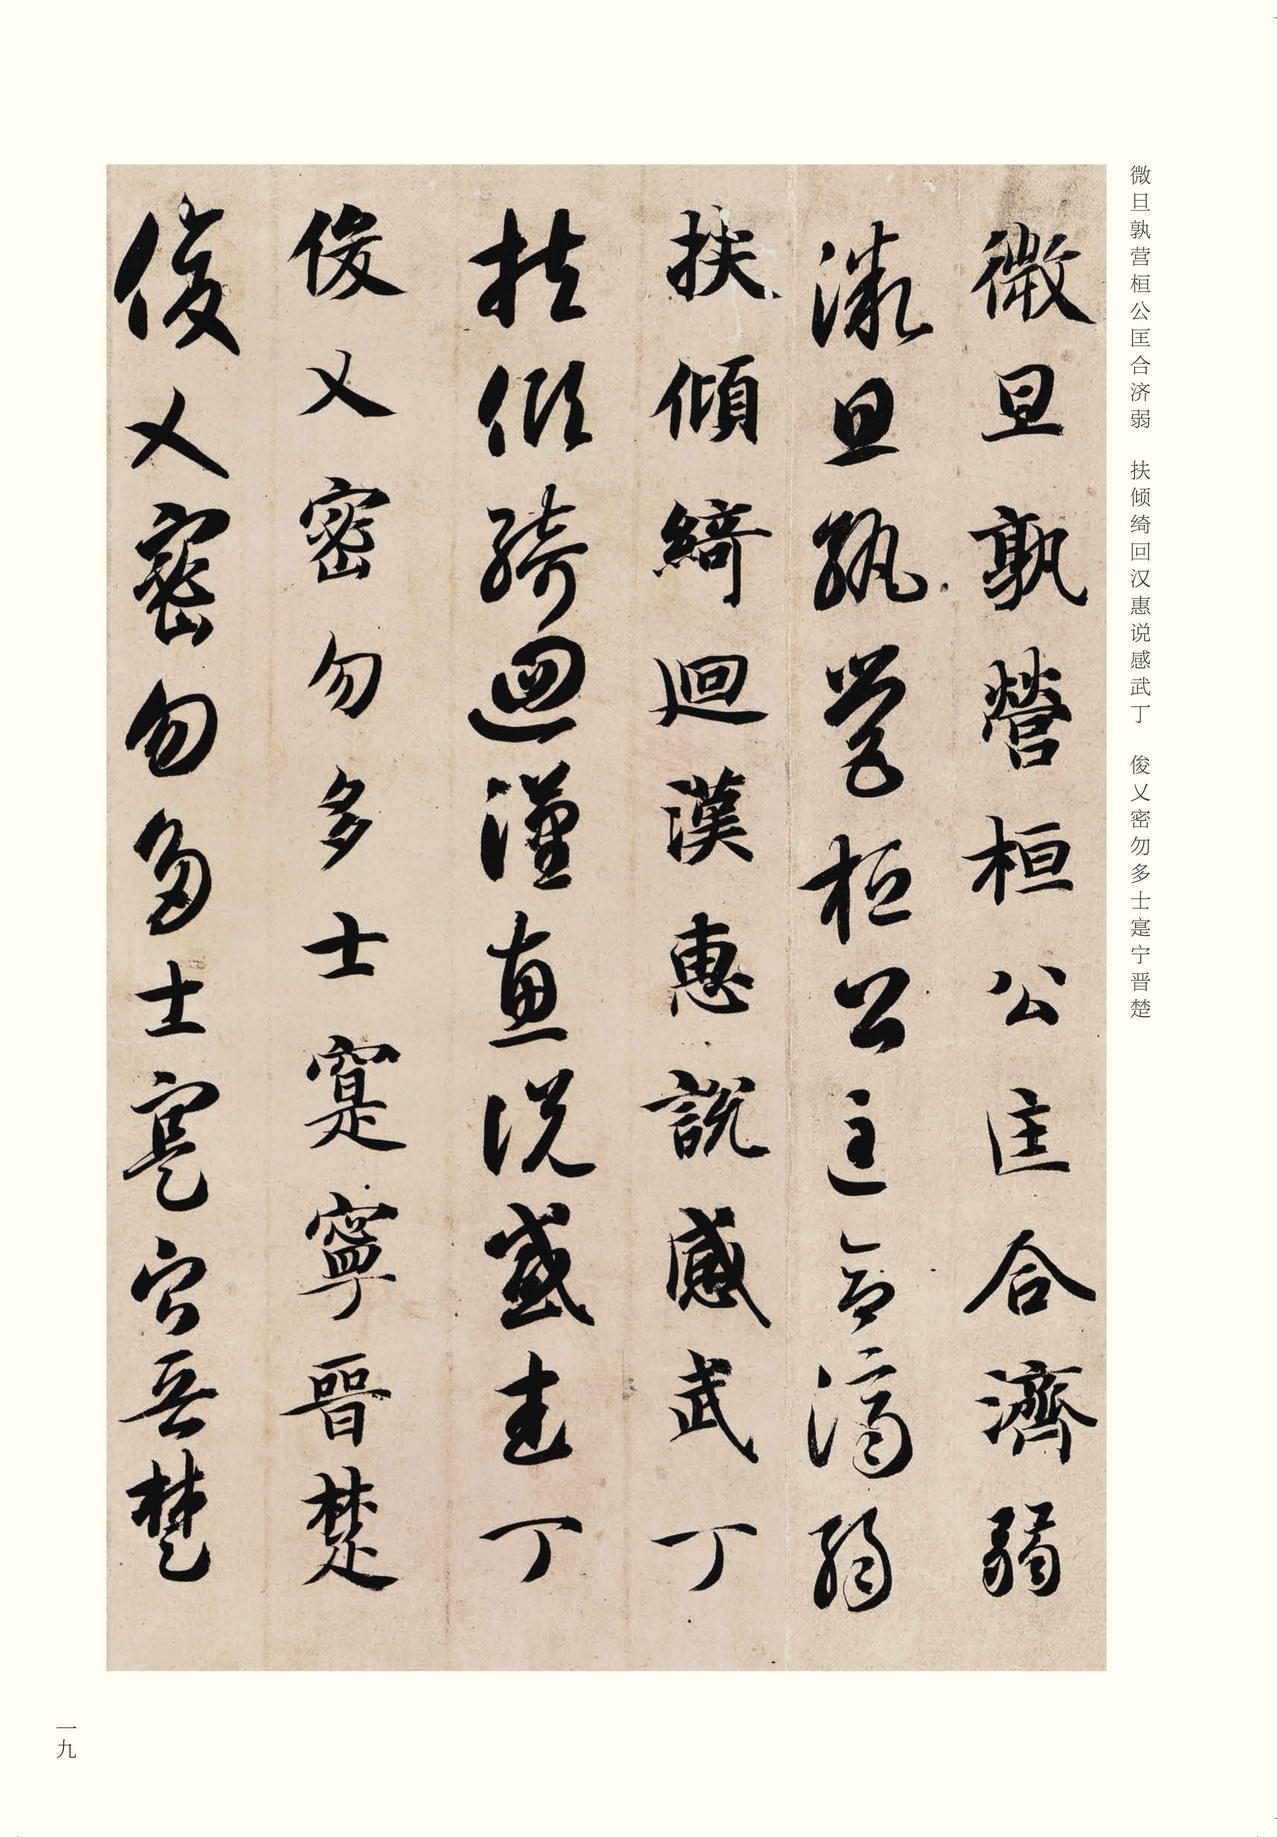 微旦孰营桓公匡合济弱　扶倾绮回汉惠说感武丁　俊乂密勿多士寔宁晋楚
微旦孰營桓公匡合濟弱
微旦孰營桓公匡合濟弱
扶傾綺迴漢惠說感武丁
扶傾綺迴漢惠說感武丁
俊乂密勿多士寔寧晉楚
俊乂密勿多士寔寧晉楚
一九